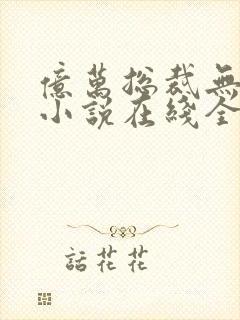 億萬總裁無
小說在綫全
話花花